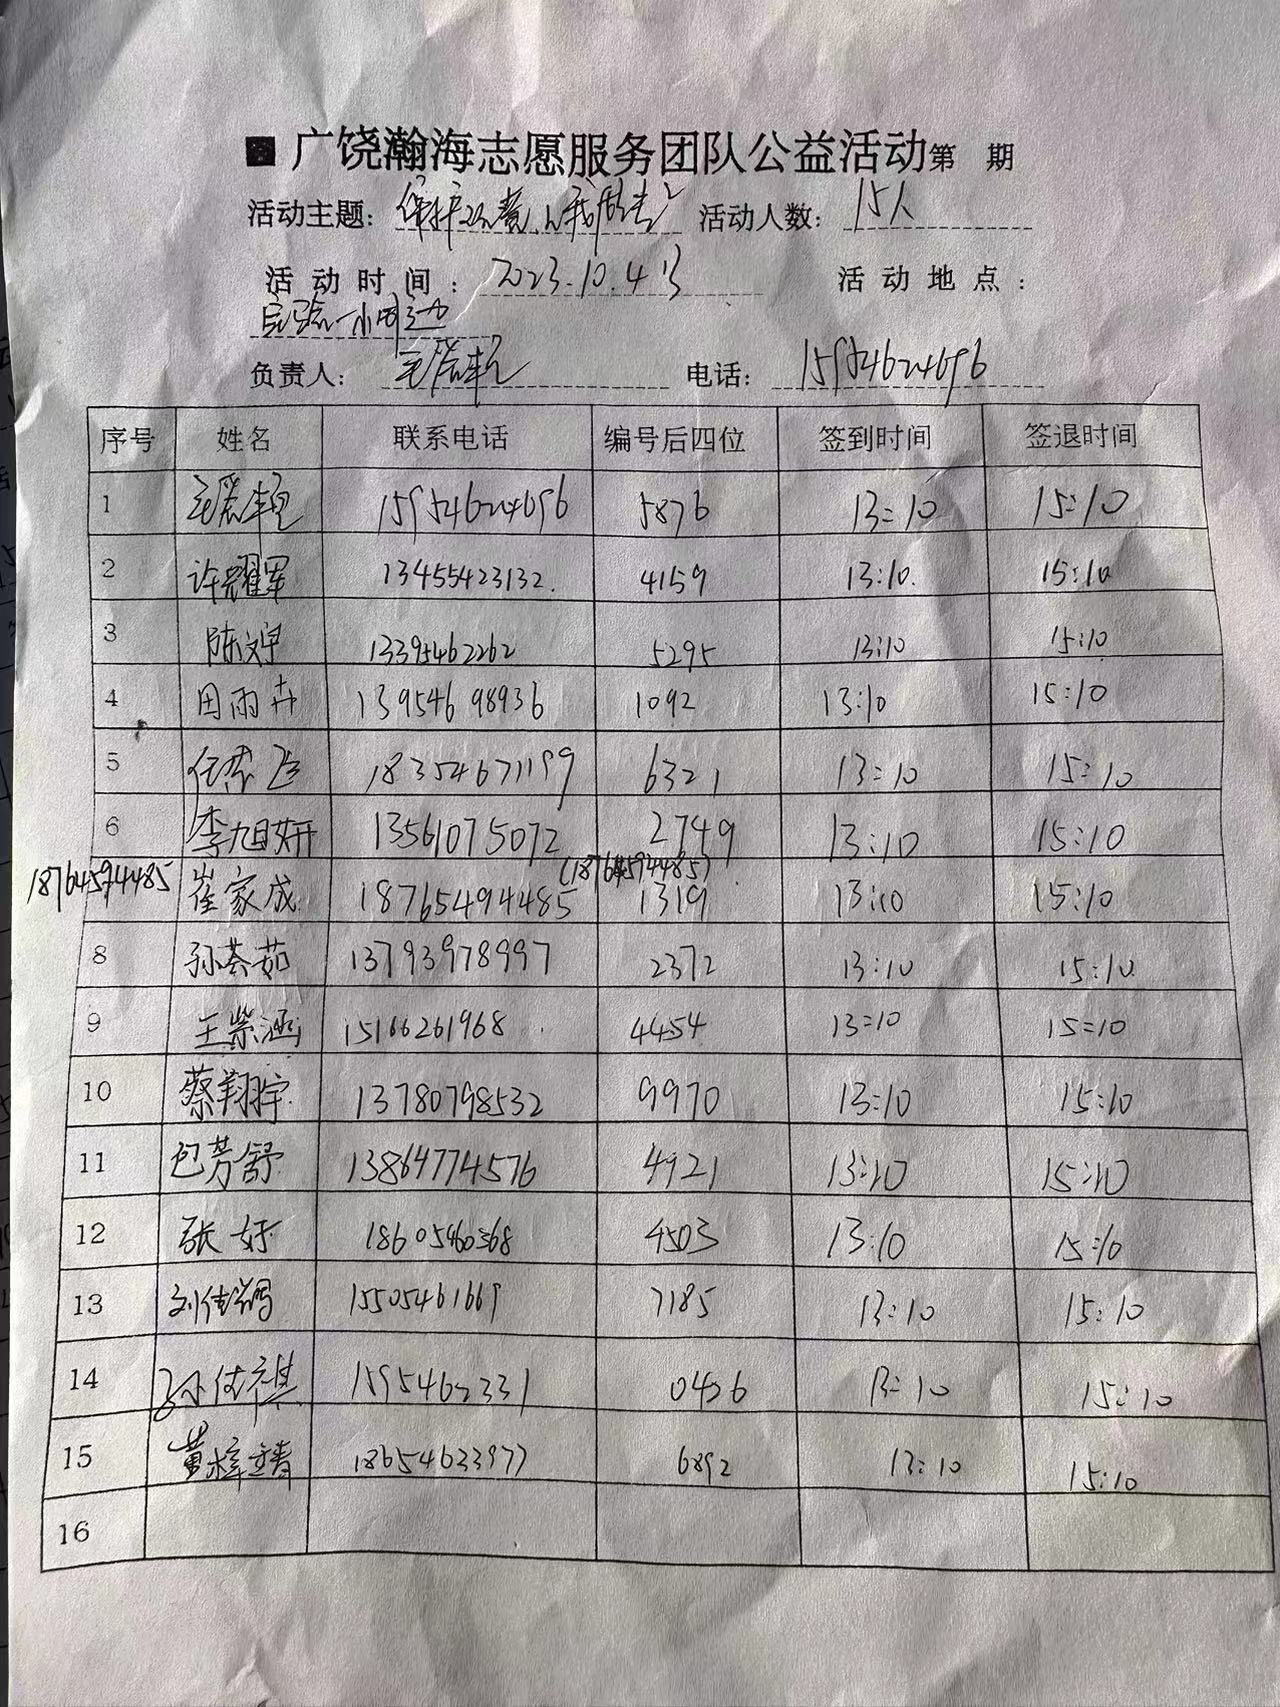 广饶瀚海志愿服务团队公益活动第 期
活动主题: 保护环境,从我做起 活动人数: 15人
活动时间: 2023.10.4日 活动地点:
实验一小周边
负责人: 电话: 15954624696
序号 姓名 联系电话 编号后四位 签到时间 签退时间
1 15954624696 5876 13:10 15:10
2 许耀军 13455423132. 4159 13:10. 15:10
3 陈文宇 13395462262 5295 13:10 15:10
4 田雨卉 13954698936 1092 13:10 15:10
5 18354671199 6321 13:10 15:10
6 李旭妍 13561075072 2749 13:10 15:10
18764594485 崔家成 18765494485 (18764594485) 1319 13:10 15:10
8 孙荟茹 13793978997 2372 13:10 15:10
9 王紫涵 15166261968 4454 13:10 15:10
10 蔡翔宇 13780798532 9970 13:10 15:10
11 包芳舒 13864774576 4921 13:10 15:10
12 张妤 18605460368 4503 13:10 15:10
13 15505461669 7185 13:10 15:10
14 孙佳祺 1595462331 0456 13:10 15:10
15 黄梓靖 18654633977 6892 13:10 15:10
16